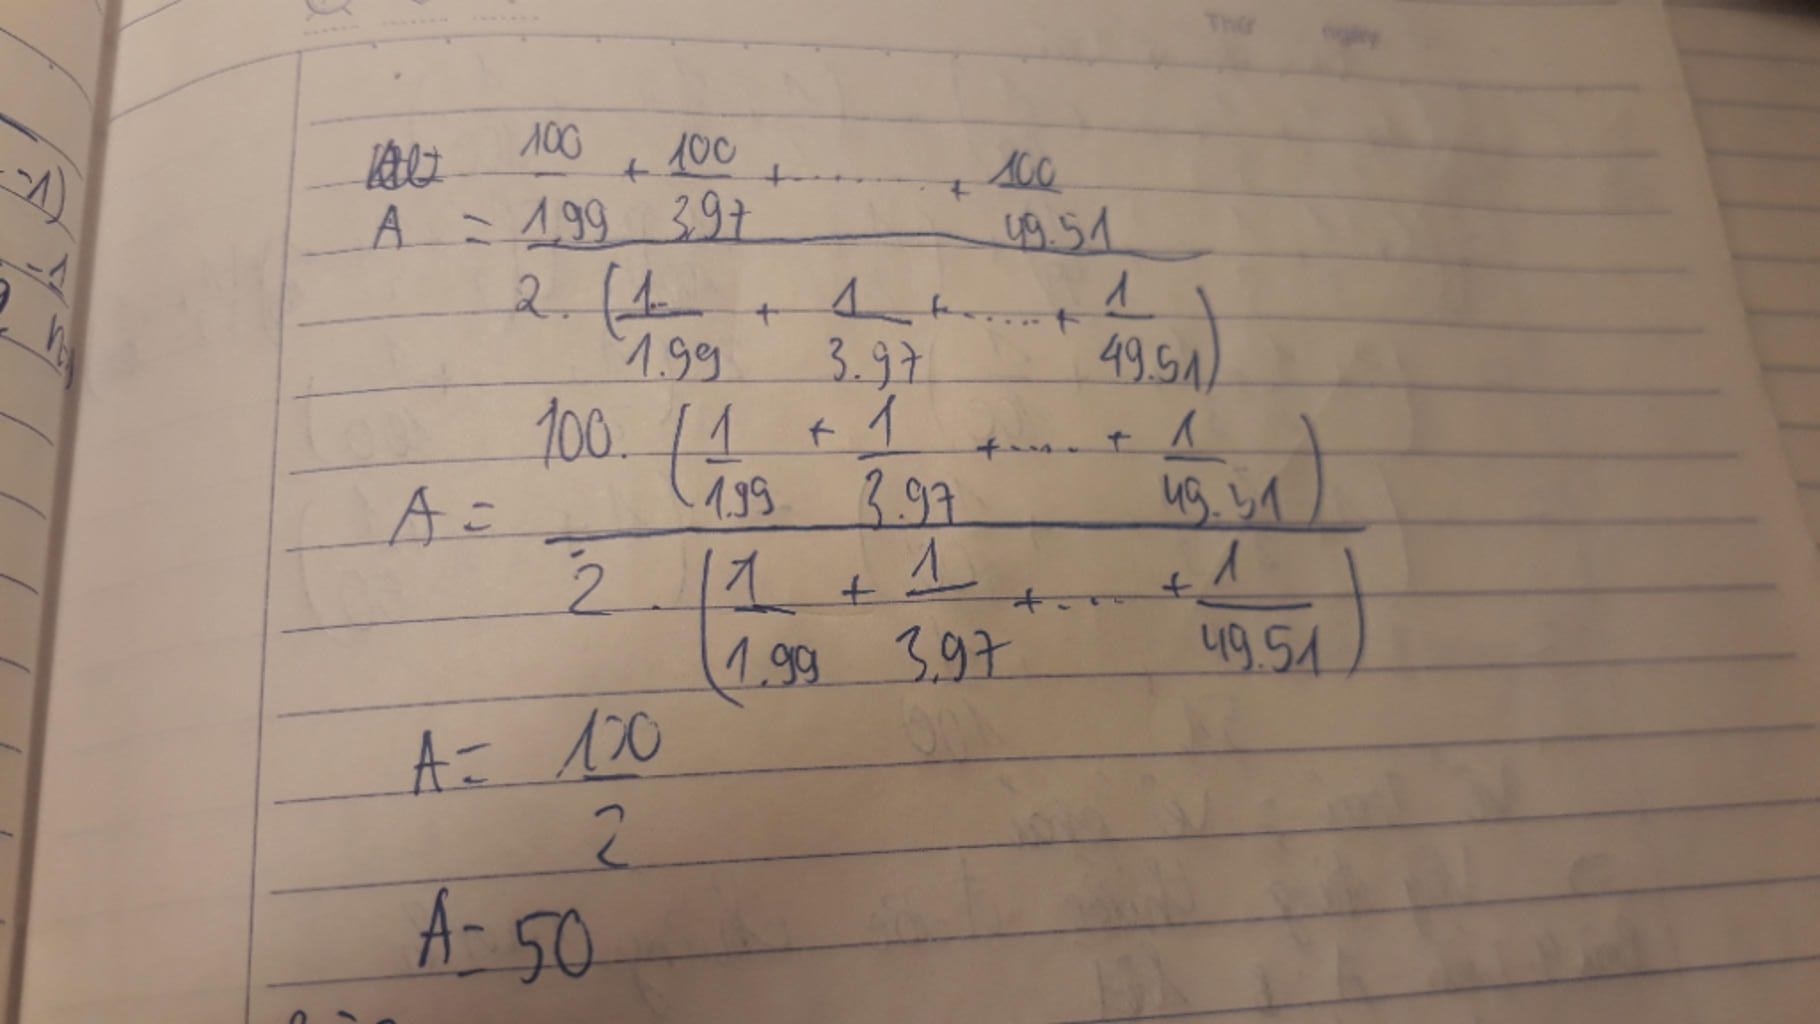 Thứ ngày
100/1.99 + 100/3.97 + ......... + 100/49.51
A = ―――――――――
2. (1/1.99 + 1/3.97 + ...... + 1/49.51)
100. (1/1.99 + 1/3.97 + ..... + 1/49.51)
A = ―――――――――
2 . (1/1.99 + 1/3.97 + .... + 1/49.51)
A = 100/2
A = 50
-1)